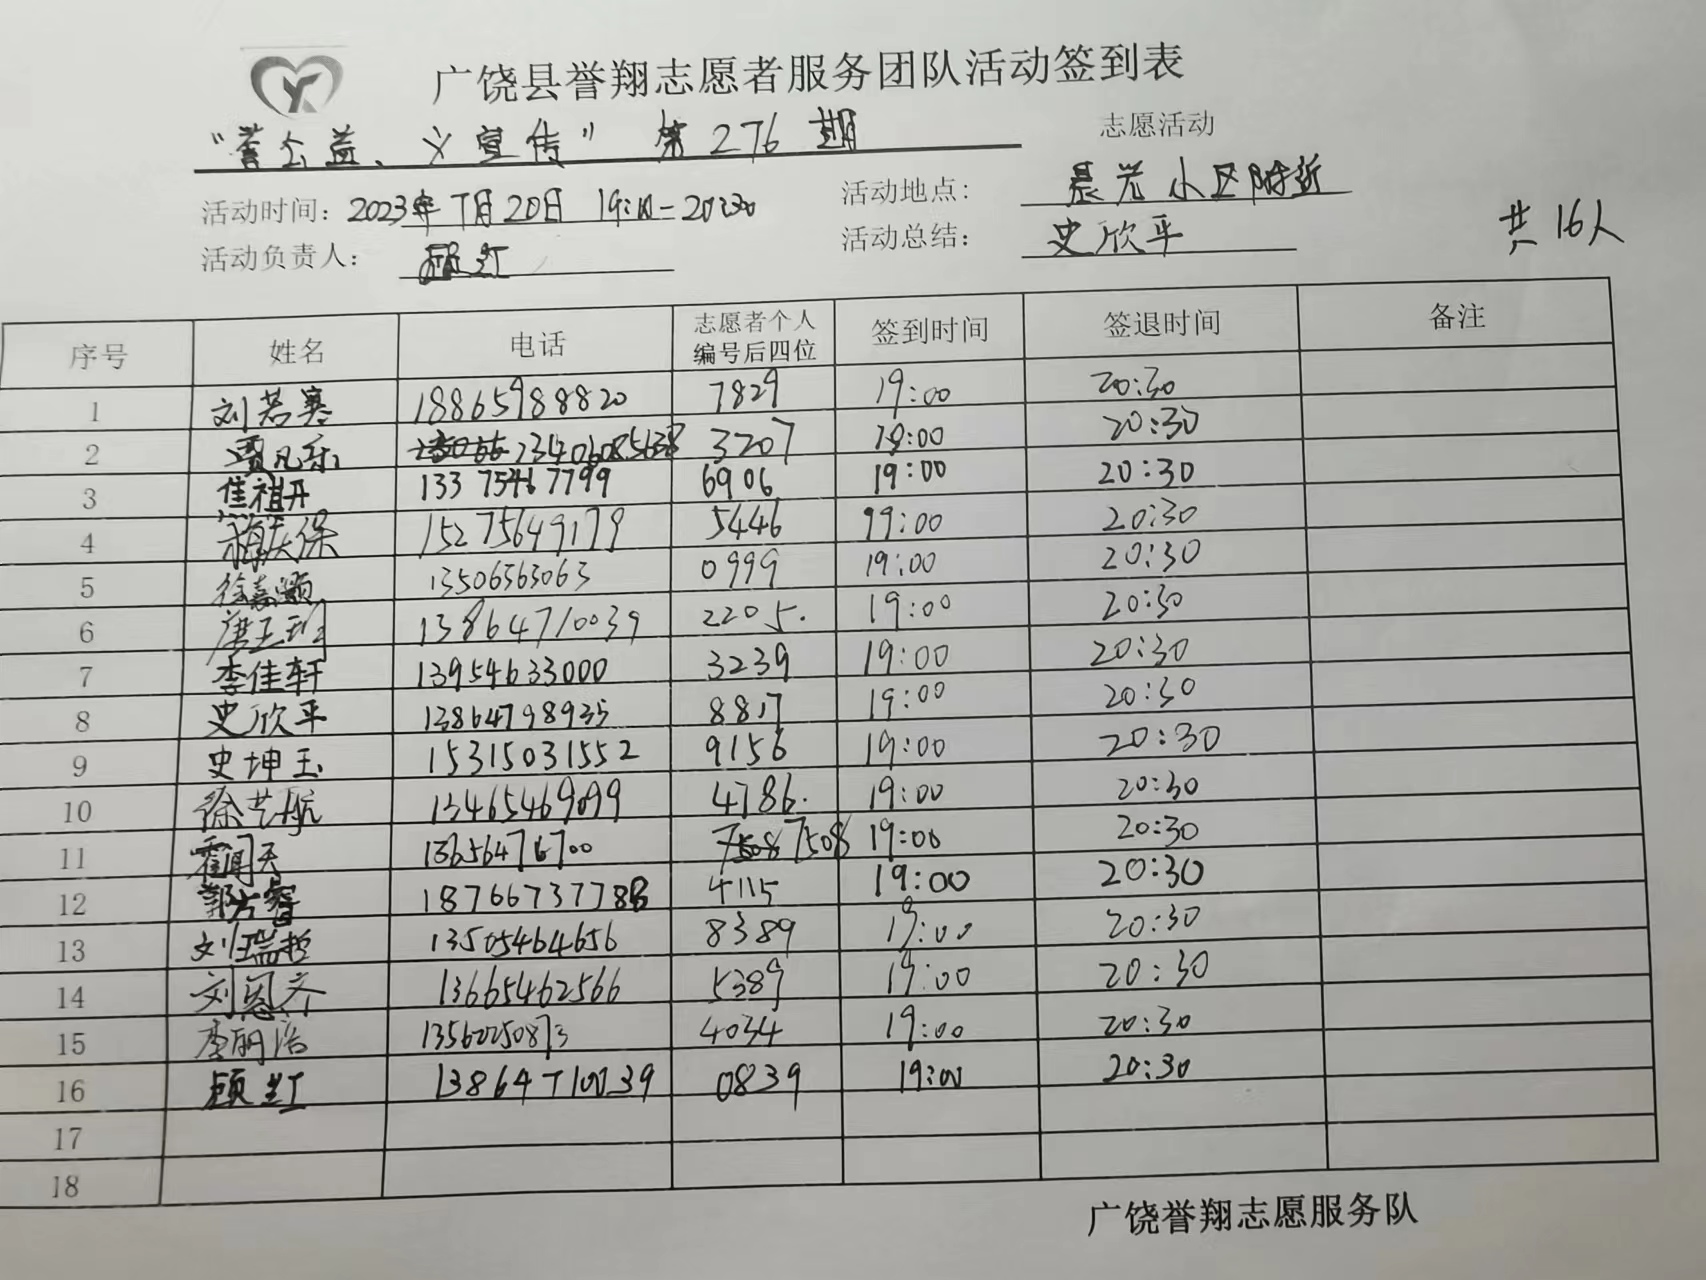 广饶县誉翔志愿者服务团队活动签到表
“誉公益、义宣传” 第276期 志愿活动
活动时间：2023年7月20日 19:00-20:30 活动地点： 晨光小区附近
活动负责人： 顾红 活动总结： 史欣平
共16人
序号 姓名 电话 志愿者个人编号后四位 签到时间 签退时间 备注
1 刘若寒 18865988820 7829 19:00 20:30
2 贾凡乐 3207 19:00 20:30
3 焦祖开 13375467799 6906 19:00 20:30
4 15275649179 5446 19:00 20:30
5 徐嘉颢 13506363063 0999 19:00 20:30
6 唐玉珩 13864710039 2205. 19:00 20:30
7 李佳轩 13954633000 3239 19:00 20:30
8 史欣平 13864798935 8817 19:00 20:30
9 史坤玉 15315031552 9156 19:00 20:30
10 徐艺航 13465469099 4786. 19:00 20:30
11 霍闻天 13656476700 7508 19:00 20:30
12 郭芳睿 4115 19:00 20:30
13 刘瑞哲 13505464656 8389 19:00 20:30
14 刘恩齐 13665462566 5389 19:00 20:30
15 李明浩 13560250873 4034 19:00 20:30
16 顾红 13864710039 0839 19:00 20:30
17
18
广饶誉翔志愿服务队
YX